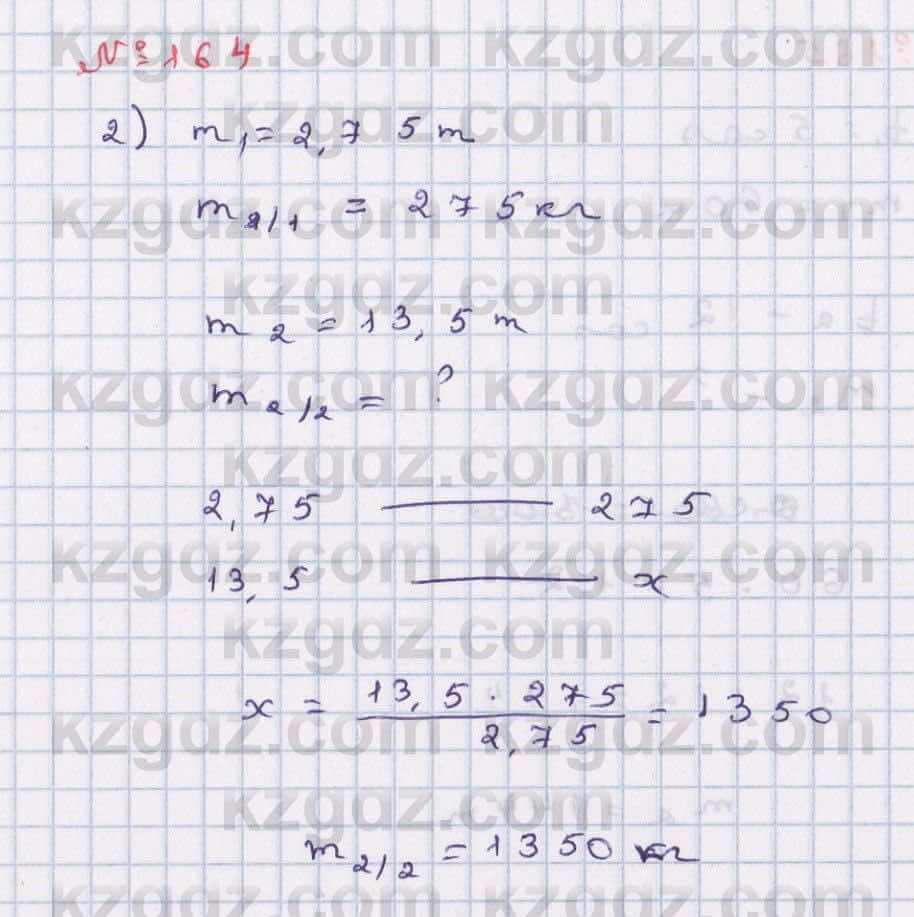 № 164
2) m₁ = 2,75 т
m₂/₁ = 275 кг
m₂ = 13,5 т
m₂/₂ = ?
2,75 —— 275
13,5 —— x
x = (13,5 · 275) / 2,75 = 1350
m₂/₂ = 1350 кг
kzgdz.com